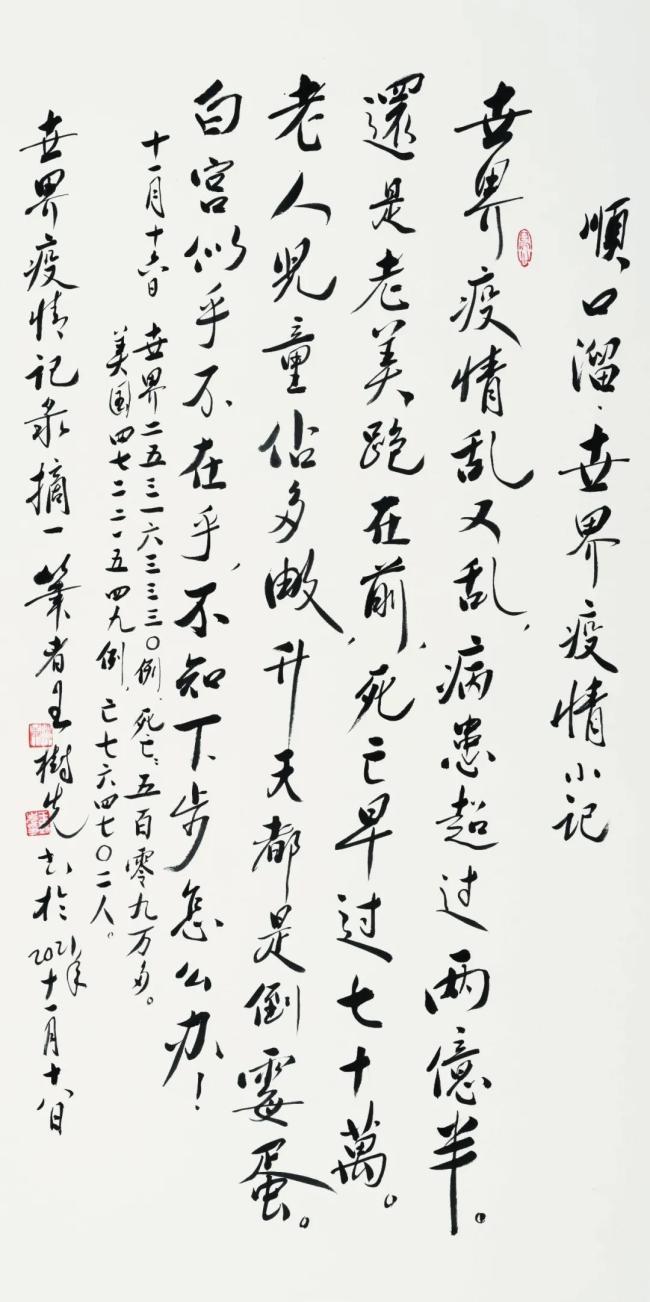 順口溜：世界疫情小记
世界疫情乱又乱，病患超过两億半。
還是老美跑在前，死亡早过七十萬。
老人児童佔多数升天都是倒霉蛋。
白宫似乎不在乎，不知下步怎么办！
十一月十六日 世界二五三一六三三三〇例，死亡：五百零九万多。
美国四七二二一五四九例，亡七六四七〇二人。
世界疫情记录摘一 筆者王樹先书於2021年十一月十八日